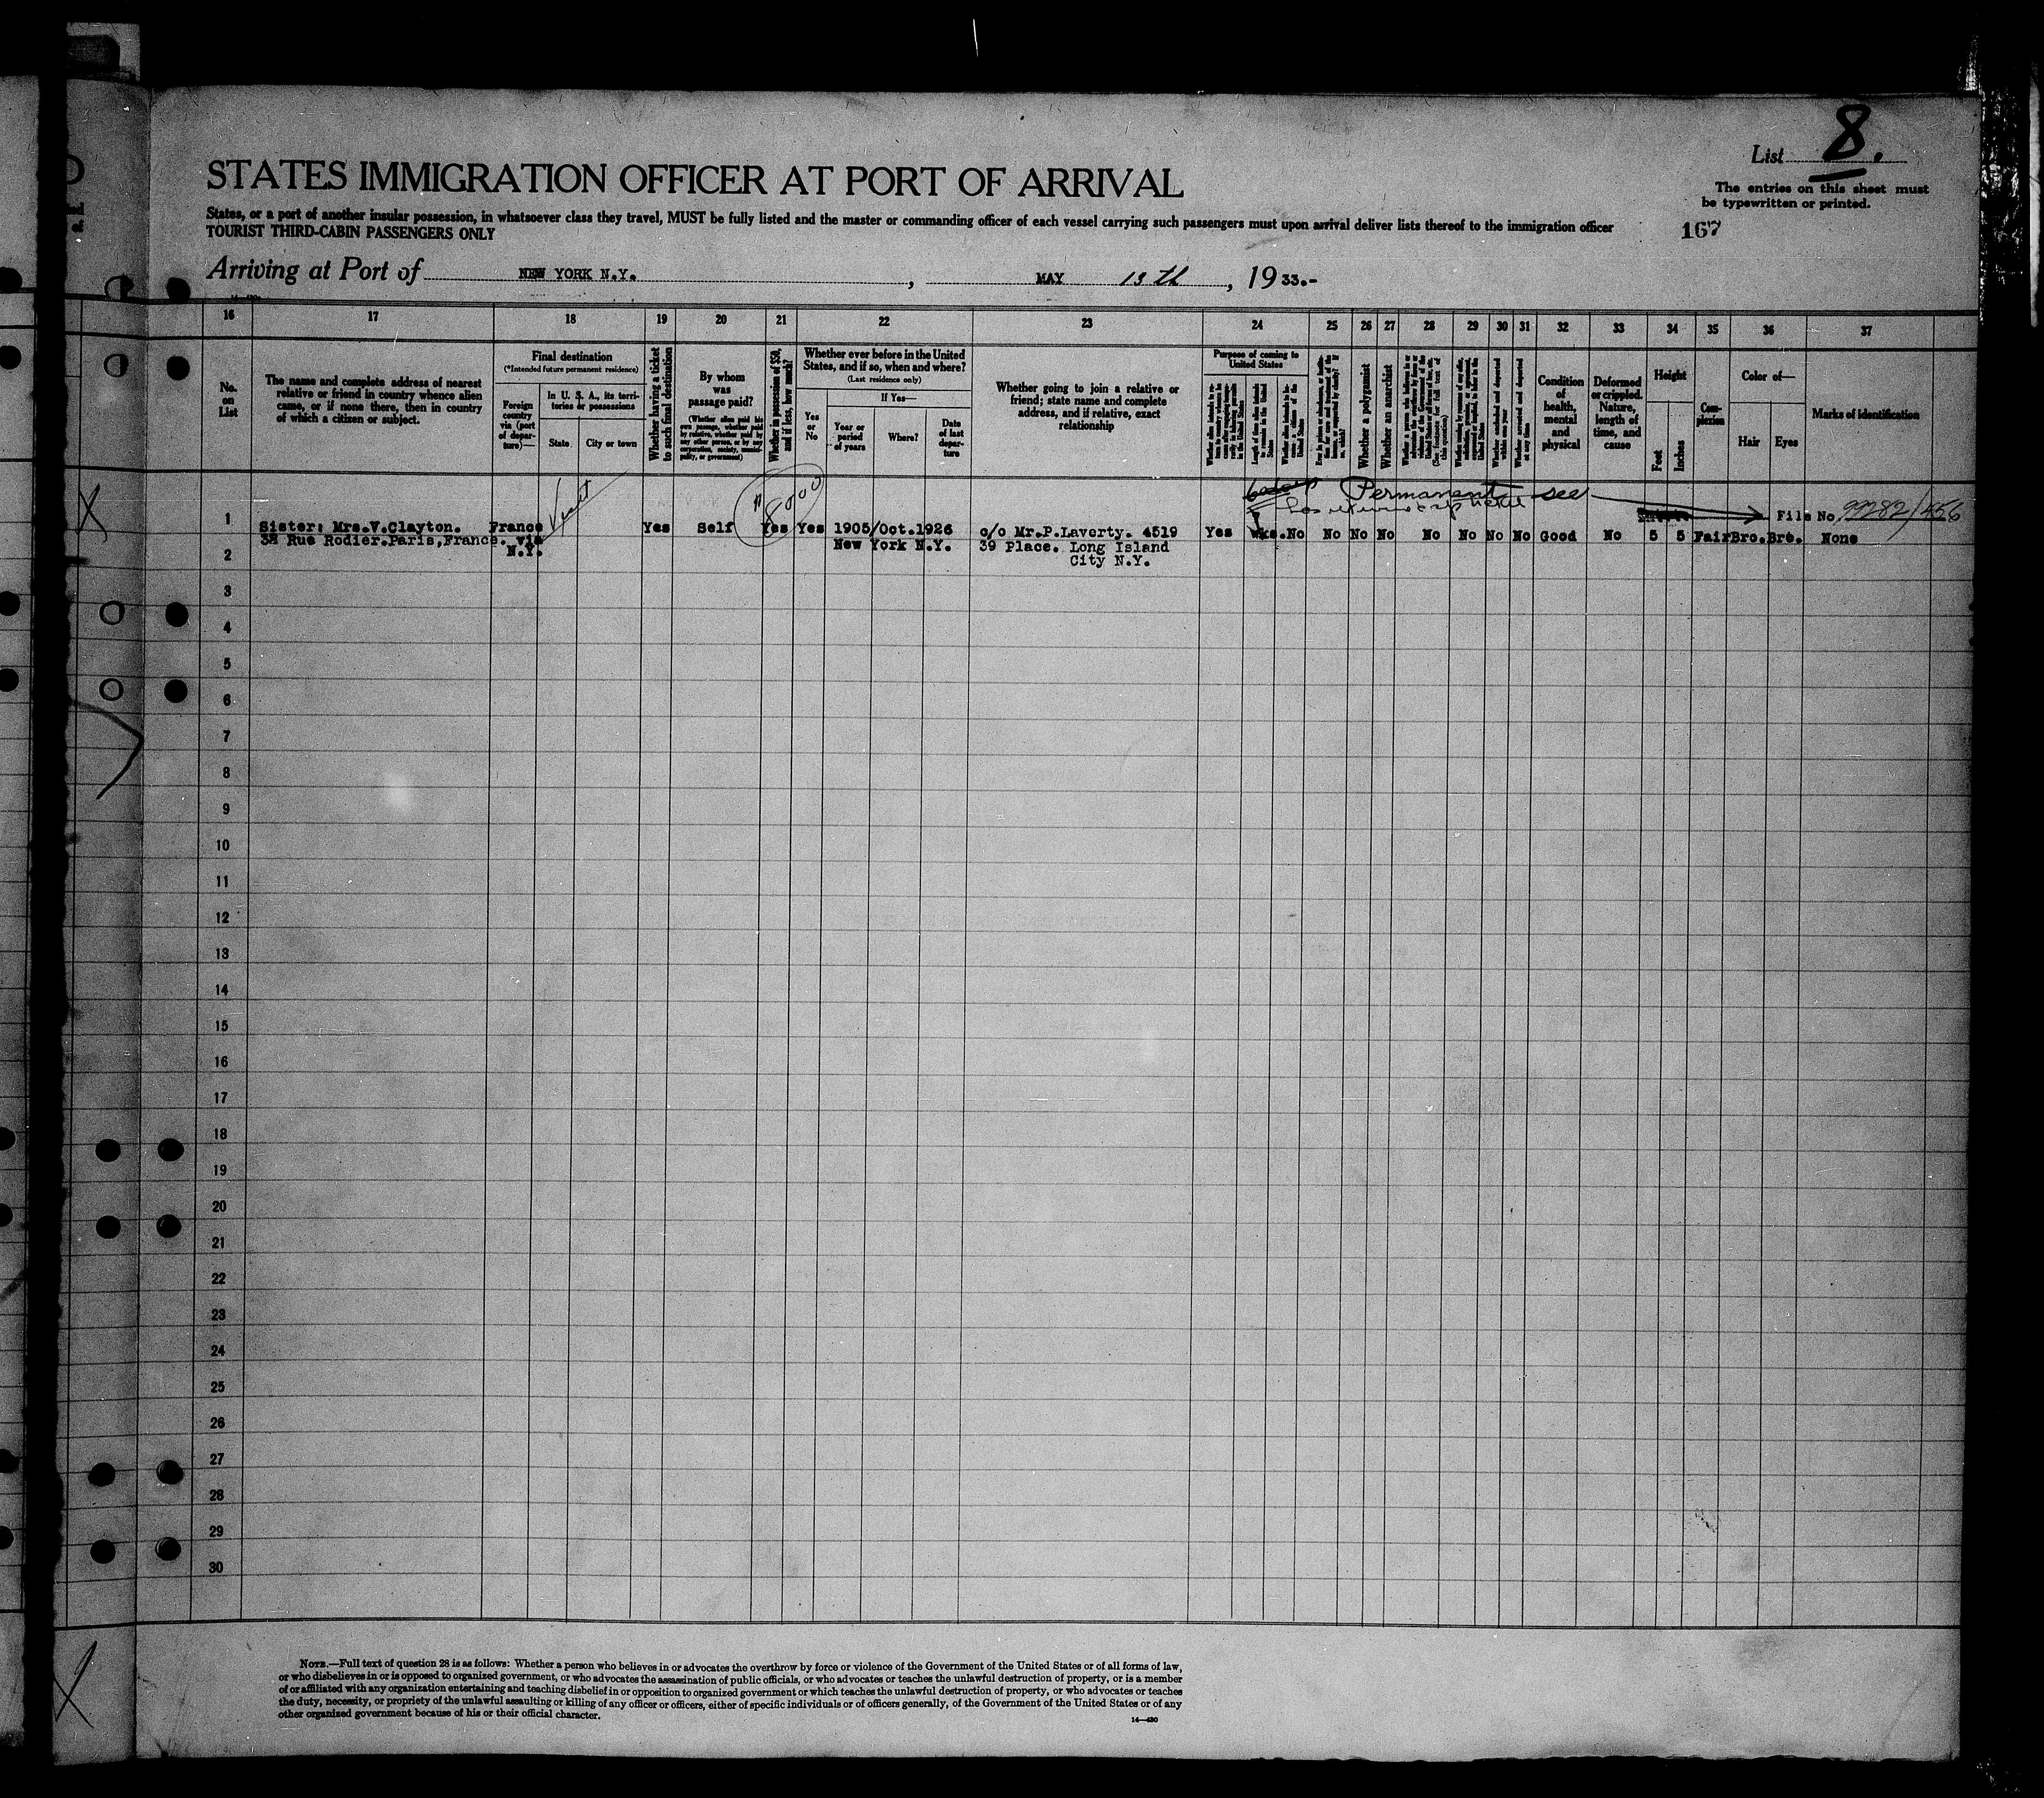 List 8.
The entries on this sheet must
be typewritten or printed.
167
STATES IMMIGRATION OFFICER AT PORT OF ARRIVAL
States, or a port of another insular possession, in whatsoever class they travel, MUST be fully listed and the master or commanding officer of each vessel carrying such passengers must upon arrival deliver lists thereof to the immigration officer
TOURIST THIRD-CABIN PASSENGERS ONLY
Arriving at Port of NEW YORK N.Y. , MAY 13th , 19 33.-
16 17 18 19 20 21 22 23 24 25 26 27 28 29 30 31 32 33 34 35 36 37
No.
on
List
The name and complete address of nearest
relative or friend in country whence alien
came, or if none there, then in country
of which a citizen or subject.
Final destination
(*Intended future permanent residence)
Foreign
country
via (port
of depar-
ture)—
In U. S. A., its terri-
tories or possessions
State
City or town
Whether having a ticket
to such final destination
By whom
was
passage paid?
(Whether alien paid his
own passage, whether paid
by relative, whether paid by
any other person, or by any
corporation, society, munici-
pality, or government)
Whether in possession of $50,
and if less, how much?
Whether ever before in the United
States, and if so, when and where?
(Last residence only)
Yes
or
No
If Yes—
Year or
period
of years
Where?
Date
of last
depar-
ture
Whether going to join a relative or
friend; state name and complete
address, and if relative, exact
relationship
Purpose of coming to
United States
Length of time alien intends
to remain in the United
States
Whether a polygamist
Whether an anarchist
Condition
of
health,
mental
and
physical
Deformed
or crippled.
Nature,
length of
time, and
cause
Height
Feet
Inches
Com-
plexion
Color of—
Hair
Eyes
Marks of identification
Permanent see
File No. 99282/456
1 Sister: Mrs.V.Clayton. France Visit Yes Self Yes Yes 1905/Oct.1926 c/o Mr.P.Laverty. 4519 Yes wks. No No No No No No No No Good No 5 5 Fair Bro. Bro. None
38 Rue Rodier.Paris,France. via New York N.Y. 39 Place. Long Island
2 N.Y. City N.Y.
3
4
5
6
7
8
9
10
11
12
13
14
15
16
17
18
19
20
21
22
23
24
25
26
27
28
29
30
NOTE.—Full text of question 28 is as follows: Whether a person who believes in or advocates the overthrow by force or violence of the Government of the United States or of all forms of law,
or who disbelieves in or is opposed to organized government, or who advocates the assassination of public officials, or who advocates or teaches the unlawful destruction of property, or is a member
of or affiliated with any organization entertaining and teaching disbelief in or opposition to organized government or which teaches the unlawful destruction of property, or who advocates or teaches
the duty, necessity, or propriety of the unlawful assaulting or killing of any officer or officers, either of specific individuals or of officers generally, of the Government of the United States or of any
other organized government because of his or their official character.
14—430